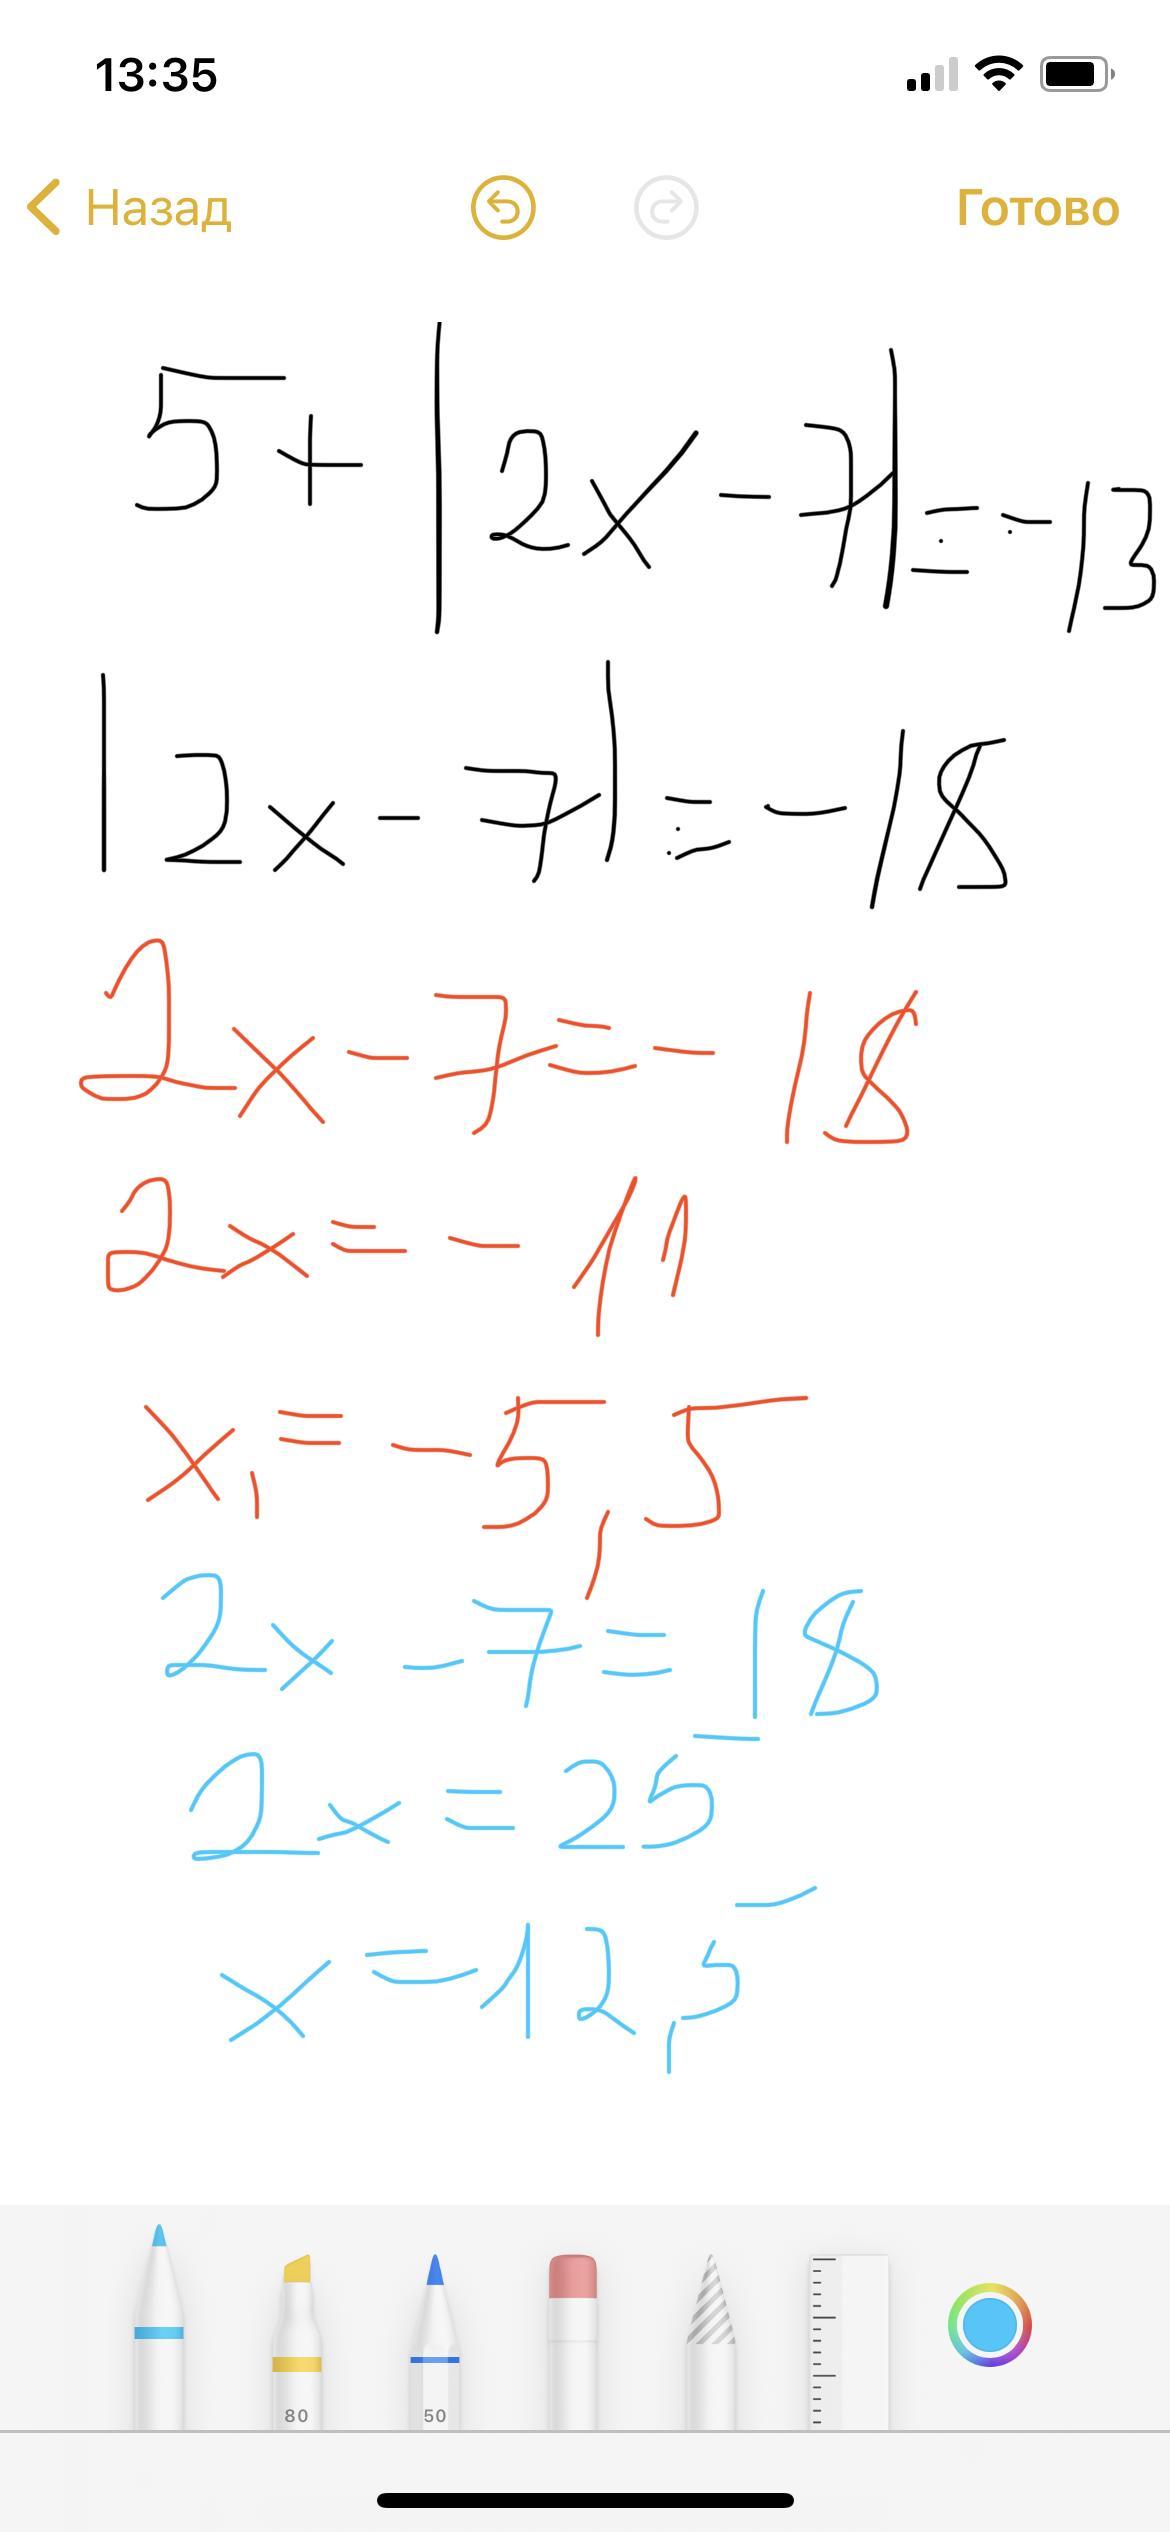 13:35
Назад Готово
5+|2x-7|=-13
|2x-7|=-18
2x-7=-18
2x=-11
x₁=-5,5
2x-7=18
2x=25
x=12,5
80 50